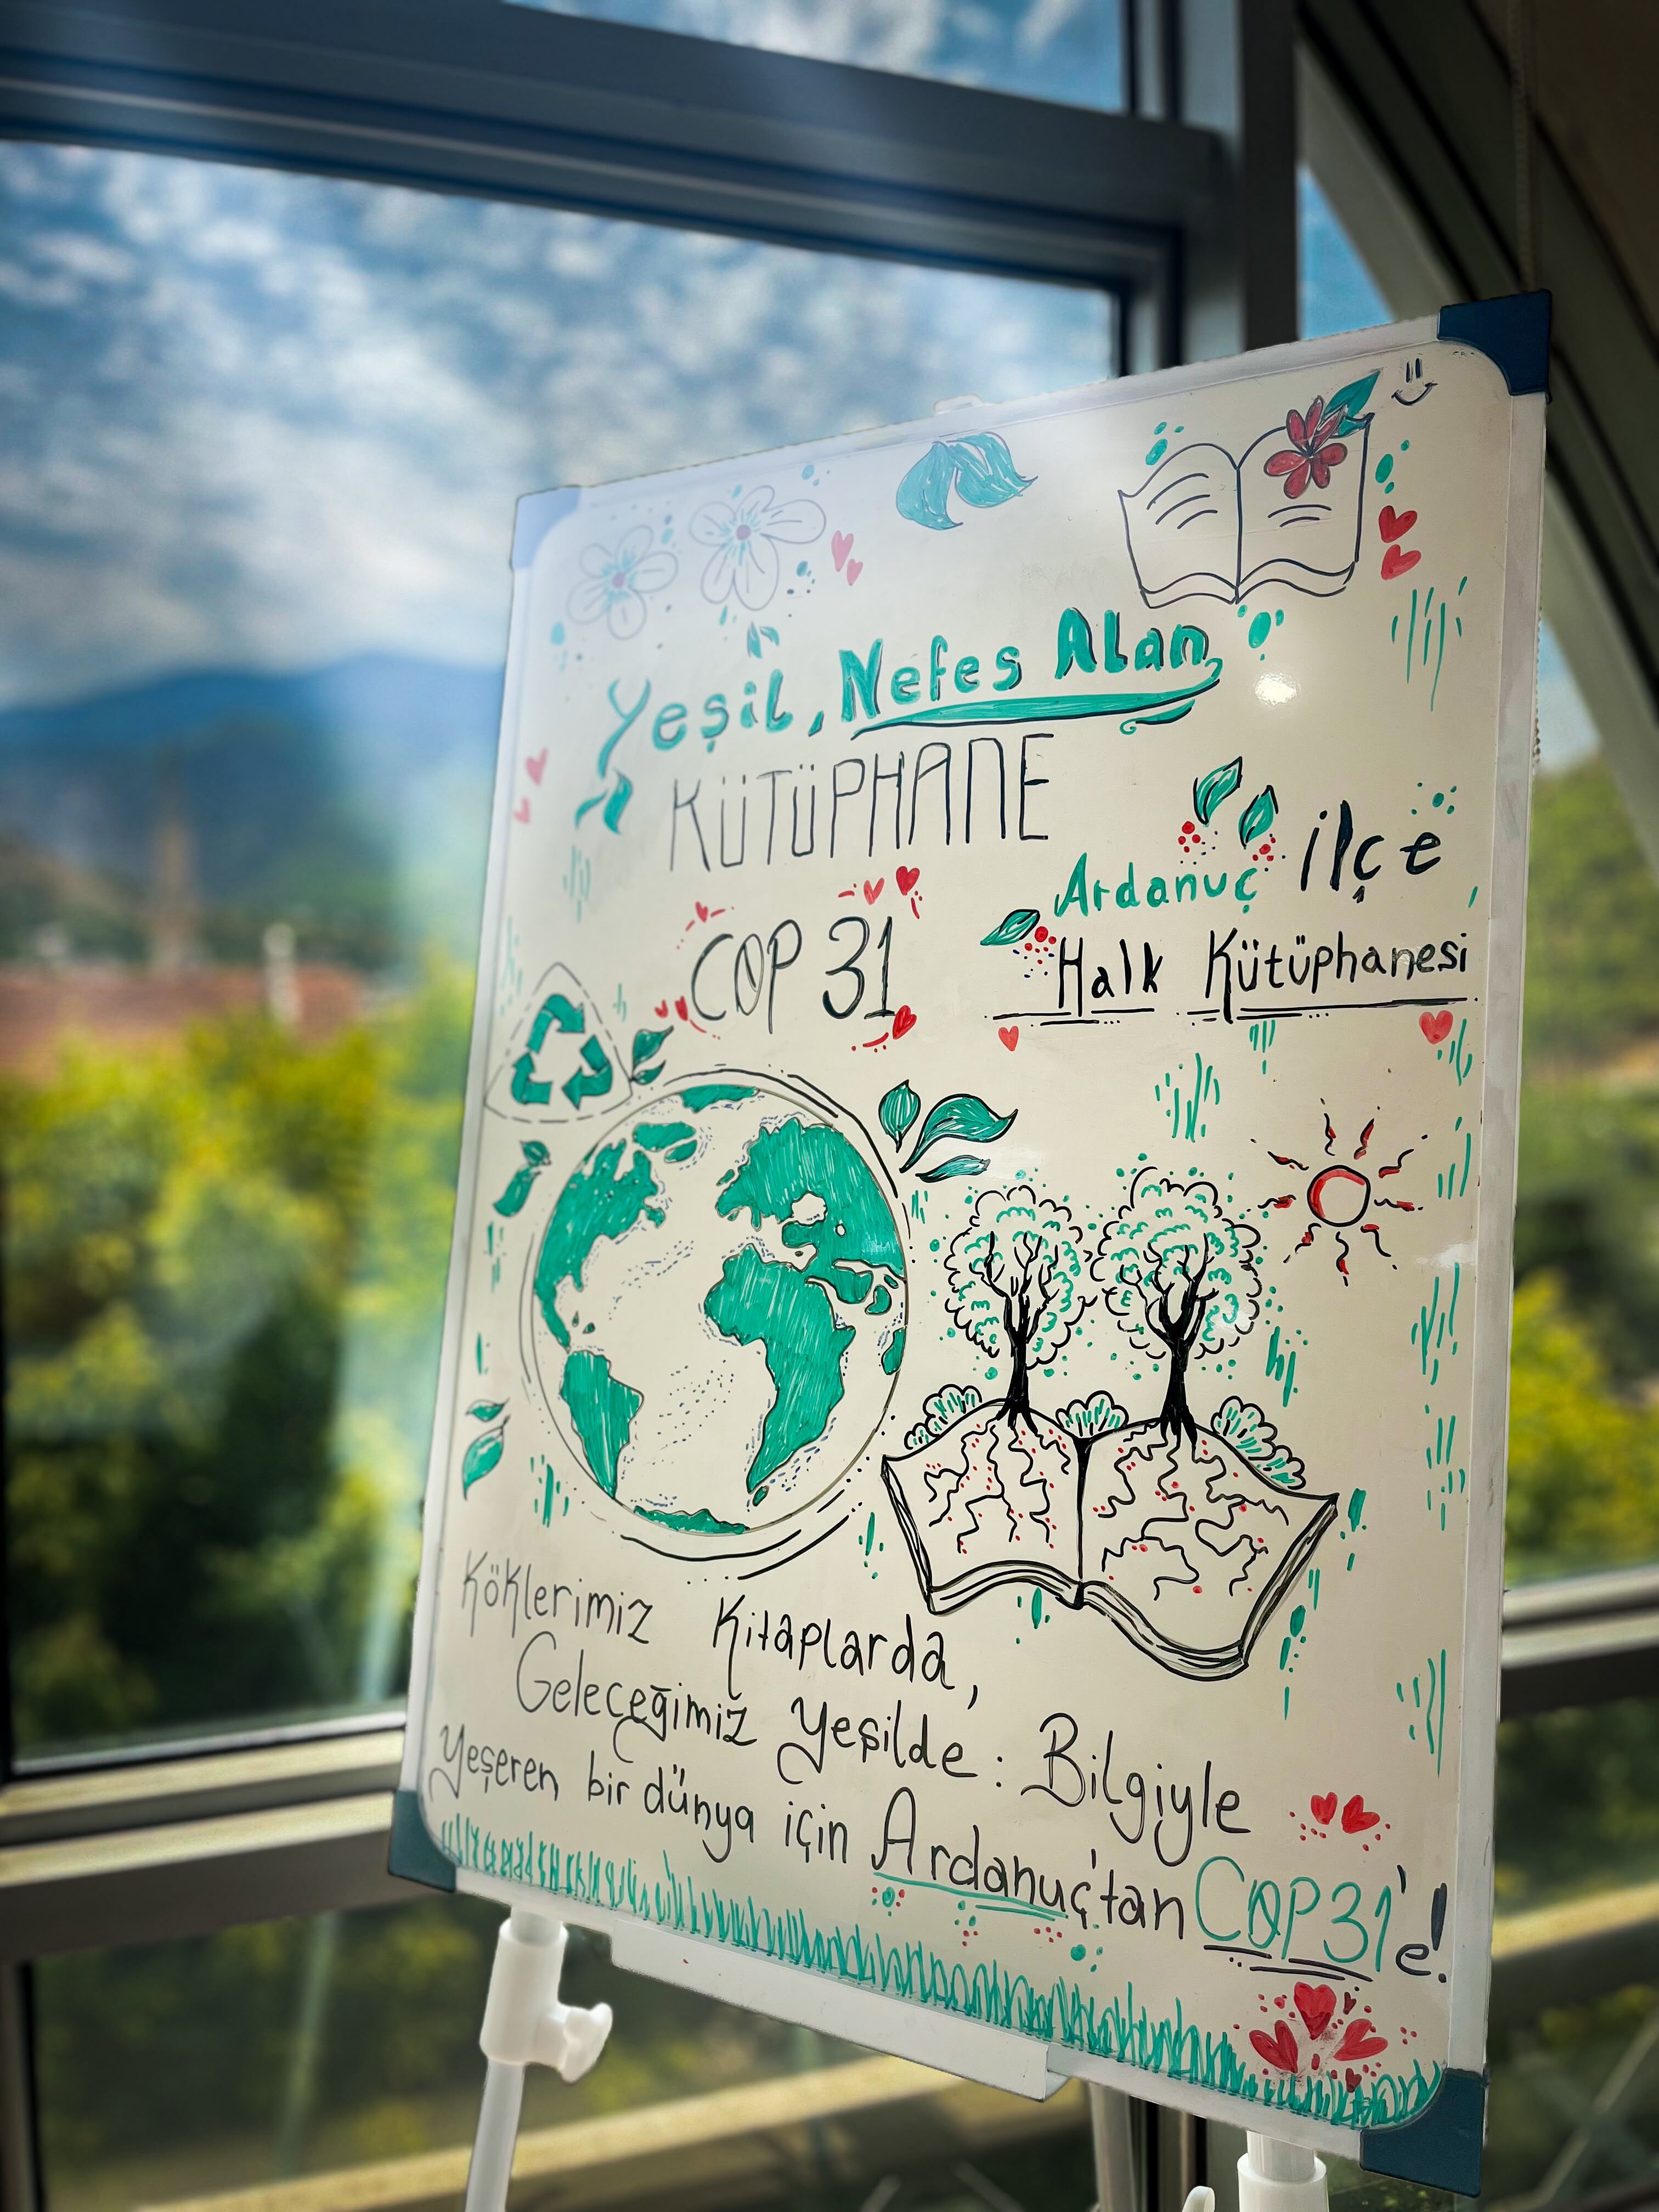 Yeşil, Nefes Alan
KÜTÜPHANE
Ardanuç ilçe
Halk Kütüphanesi
COP 31
Köklerimiz Kitaplarda,
Geleceğimiz Yeşilde: Bilgiyle
Yeşeren bir dünya için Ardanuç'tan COP31'e!